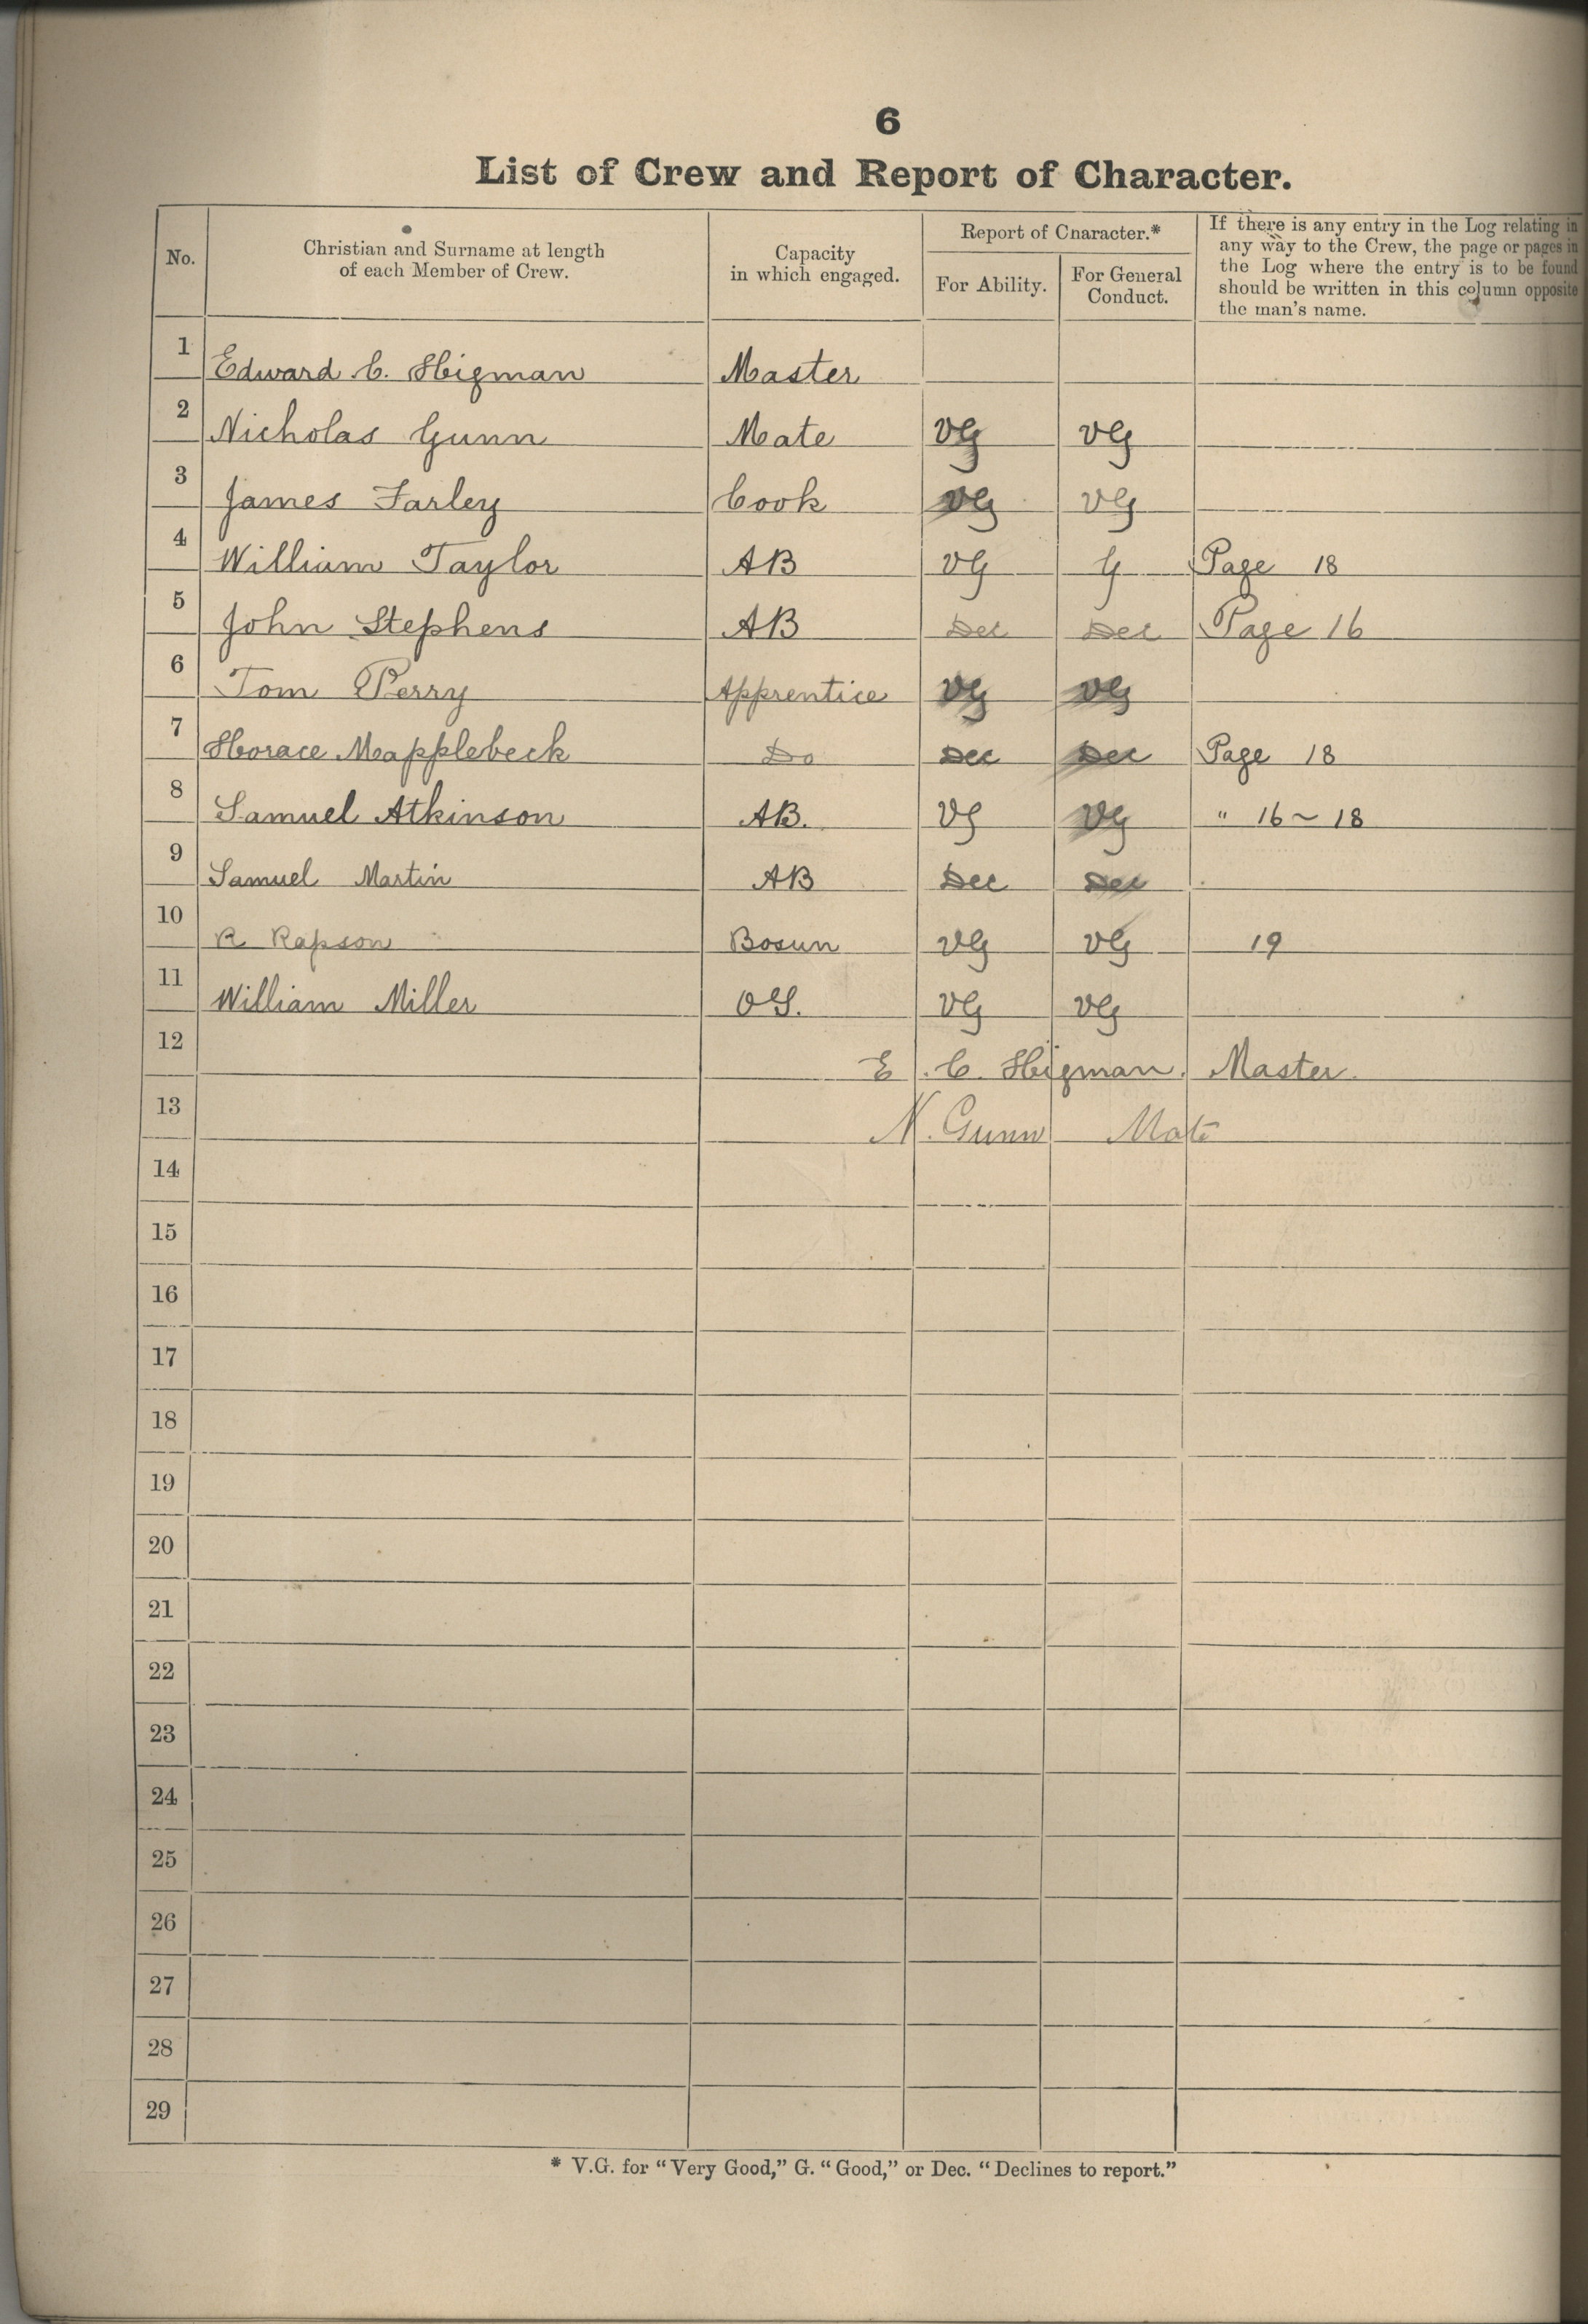 6
List of Crew and Report of Character.
No.
Christian and Surname at length
of each Member of Crew.
Capacity
in which engaged.
Report of Character.*
For Ability.
For General
Conduct.
If there is any entry in the Log relating in
any way to the Crew, the page or pages in
the Log where the entry is to be found
should be written in this column opposite
the man's name.
1 Edward C. Higman Master
2 Nicholas Gunn Mate VG VG
3 James Farley Cook VG VG
4 William Taylor AB VG G Page 18
5 John Stephens AB Dec Dec Page 16
6 Tom Perry Apprentice VG VG
7 Horace Mapplebeck Do Dec Dec Page 18
8 Samuel Atkinson AB. VG VG " 16 ~ 18
9 Samuel Martin AB Dec Dec
10 R Rapson Bosun VG VG 19
11 William Miller OS. VG VG
12 E. C. Higman. Master.
13 N. Gunn Mate
14
15
16
17
18
19
20
21
22
23
24
25
26
27
28
29
* V.G. for "Very Good," G. "Good," or Dec. "Declines to report."